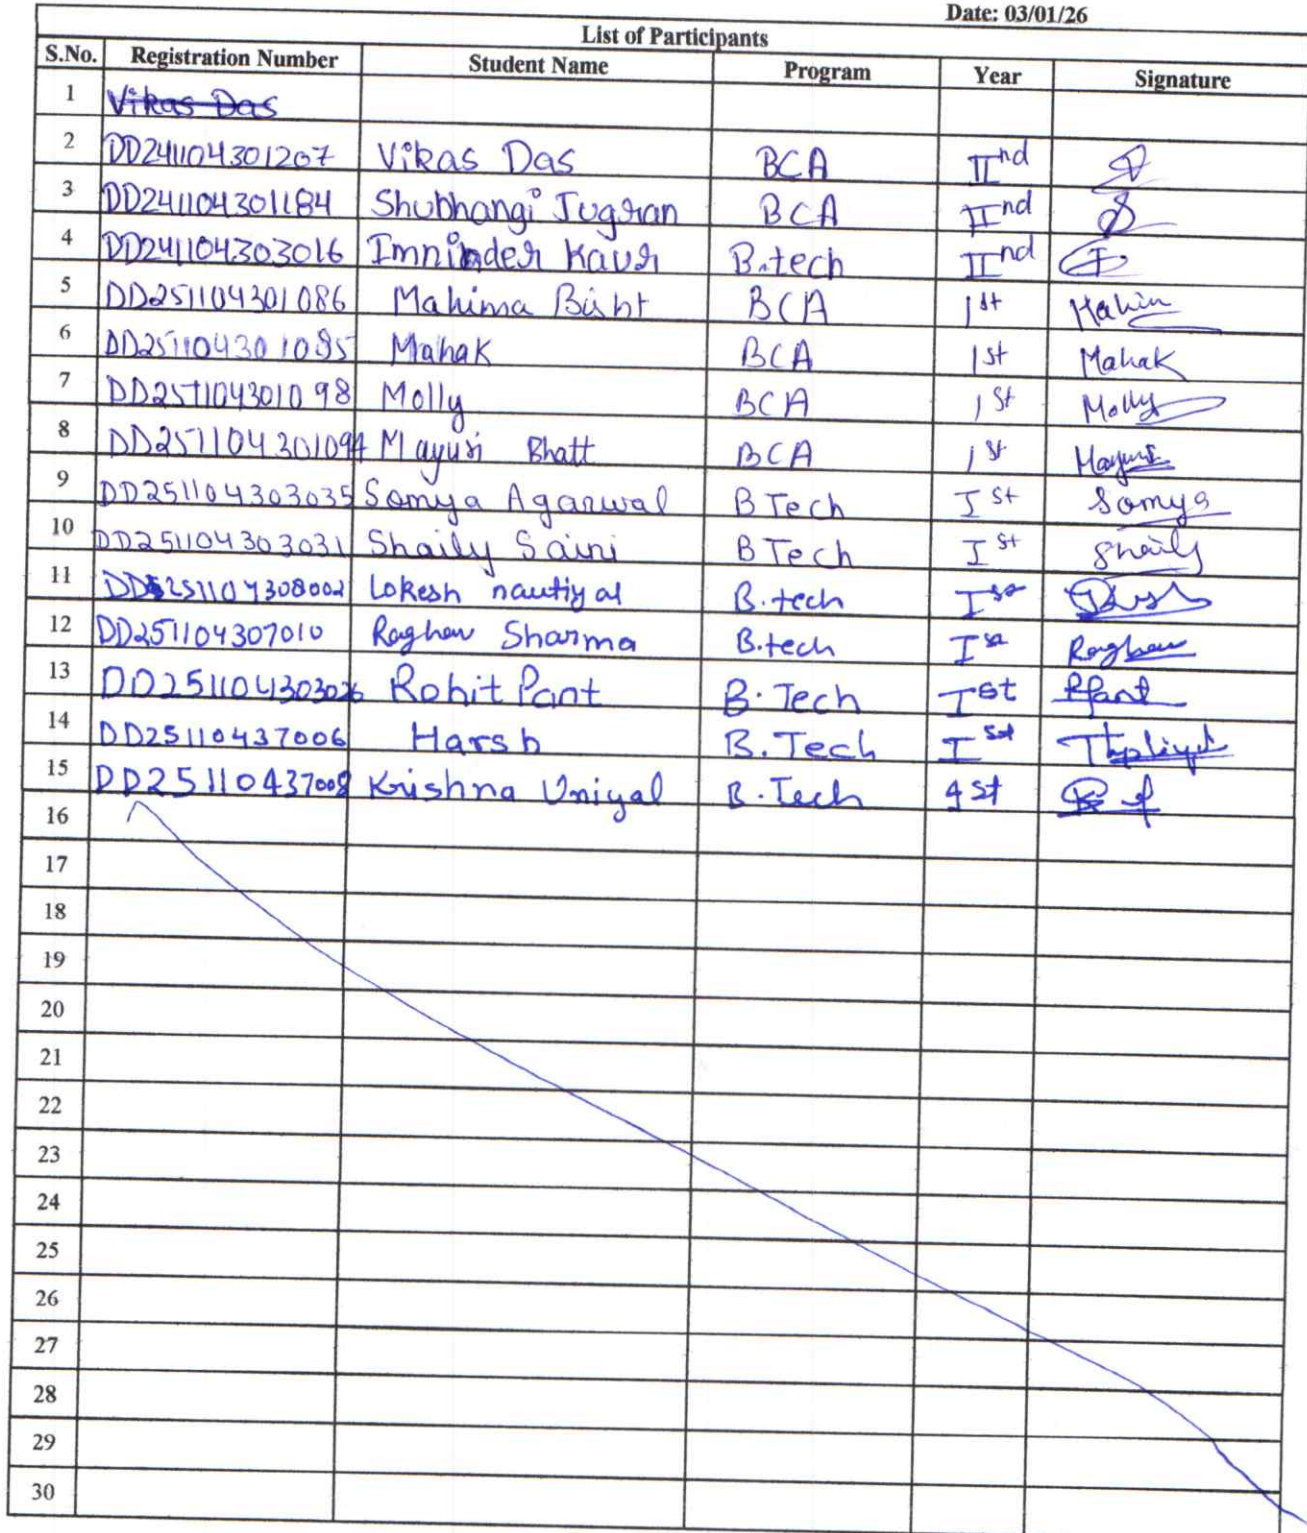 Date: 03/01/26
List of Participants
S.No. Registration Number Student Name Program Year Signature
1 Vikas Das
2 DD241104301207 Vikas Das BCA IInd
3 DD241104301184 Shubhangi Jugran BCA IInd
4 DD241104303016 Imninder Kaur B.tech IInd
5 DD251104301086 Mahima Bisht BCA 1st Mahim
6 DD251104301085 Mahak BCA 1st Mahak
7 DD251104301098 Molly BCA 1st Molly
8 DD251104301094 Mayuri Bhatt BCA 1st Mayuri
9 DD251104303035 Somya Agarwal B Tech Ist Somya
10 DD251104303031 Shaily Saini B Tech Ist Shaily
11 DD251104308002 Lokesh nautiyal B.tech Ist
12 DD251104307010 Raghav Sharma B.tech Ist Raghav
13 DD251104303026 Rohit Pant B. Tech Ist RPant
14 DD25110437006 Harsh B. Tech Ist Thapliyal
15 DD25110437008 Krishna Uniyal B. Tech 1st
16
17
18
19
20
21
22
23
24
25
26
27
28
29
30